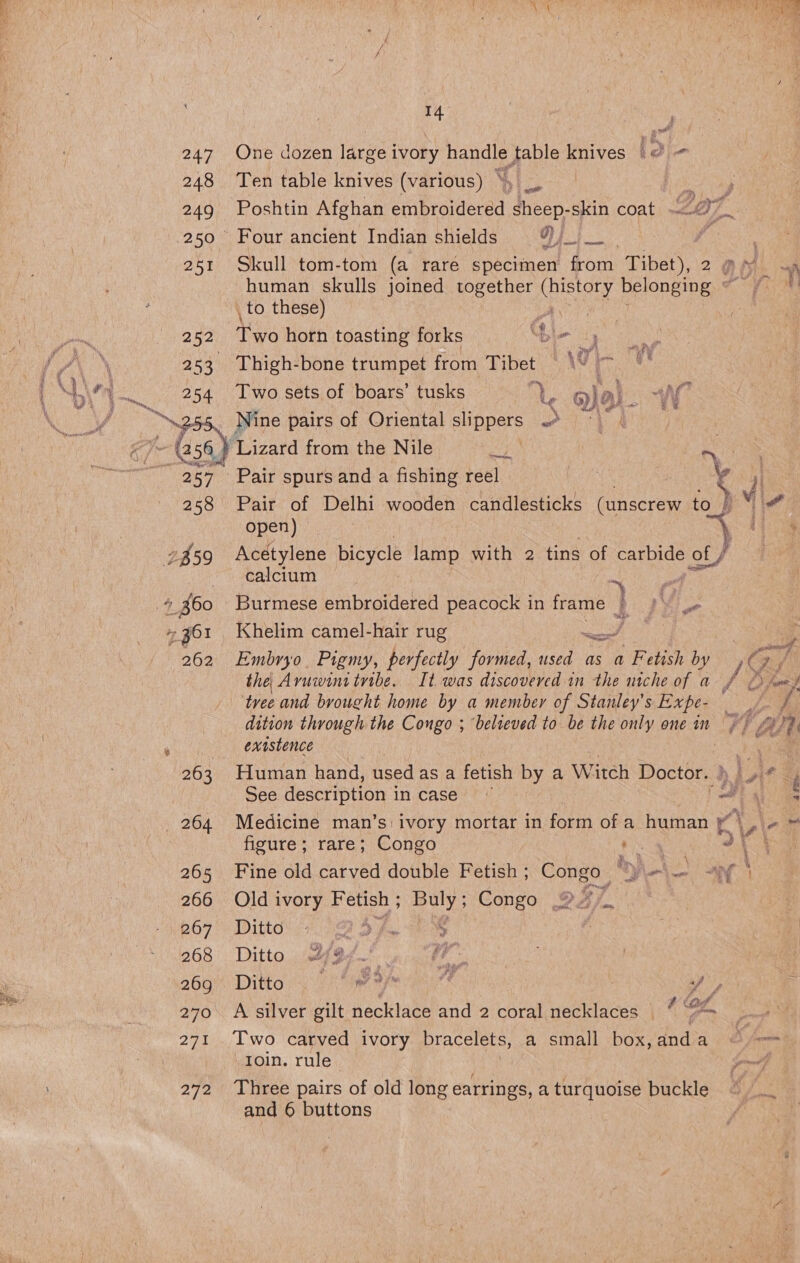 14
247 One dozen large ivory handle table knives
248 Ten table knives (various)
249 Poshtin Afghan embroidered sheep-skin coat
250 Four ancient Indian shields
251 Skull tom-tom (a rare specimen from Tibet), 2
human skulls joined together (history belonging
to these)
252 Two horn toasting forks
253 Thigh-bone trumpet from Tibet
254 Two sets of boars' tusks
255 Nine pairs of Oriental slippers
256 Lizard from the Nile
257 Pair spurs and a fishing reel
258 Pair of Delhi wooden candlesticks (unscrew to
open)
259 Acetylene bicycle lamp with 2 tins of carbide of
calcium
260 Burmese embroidered peacock in frame
261 Khelim camel-hair rug
262 Embryo Pigmy, perfectly formed, used as a Fetish by
the Aruwini tribe. It was discovered in the niche of a
tree and brought home by a member of Stanley's Expe-
dition through the Congo ; believed to be the only one in
existence
263 Human hand, used as a fetish by a Witch Doctor.
See description in case
264 Medicine man's ivory mortar in form of a human
figure ; rare ; Congo
265 Fine old carved double Fetish ; Congo
266 Old ivory Fetish ; Buly ; Congo
267 Ditto
268 Ditto
269 Ditto
270 A silver gilt necklace and 2 coral necklaces
271 Two carved ivory bracelets, a small box, and a
10in. rule
272 Three pairs of old long earrings, a turquoise buckle
and 6 buttons